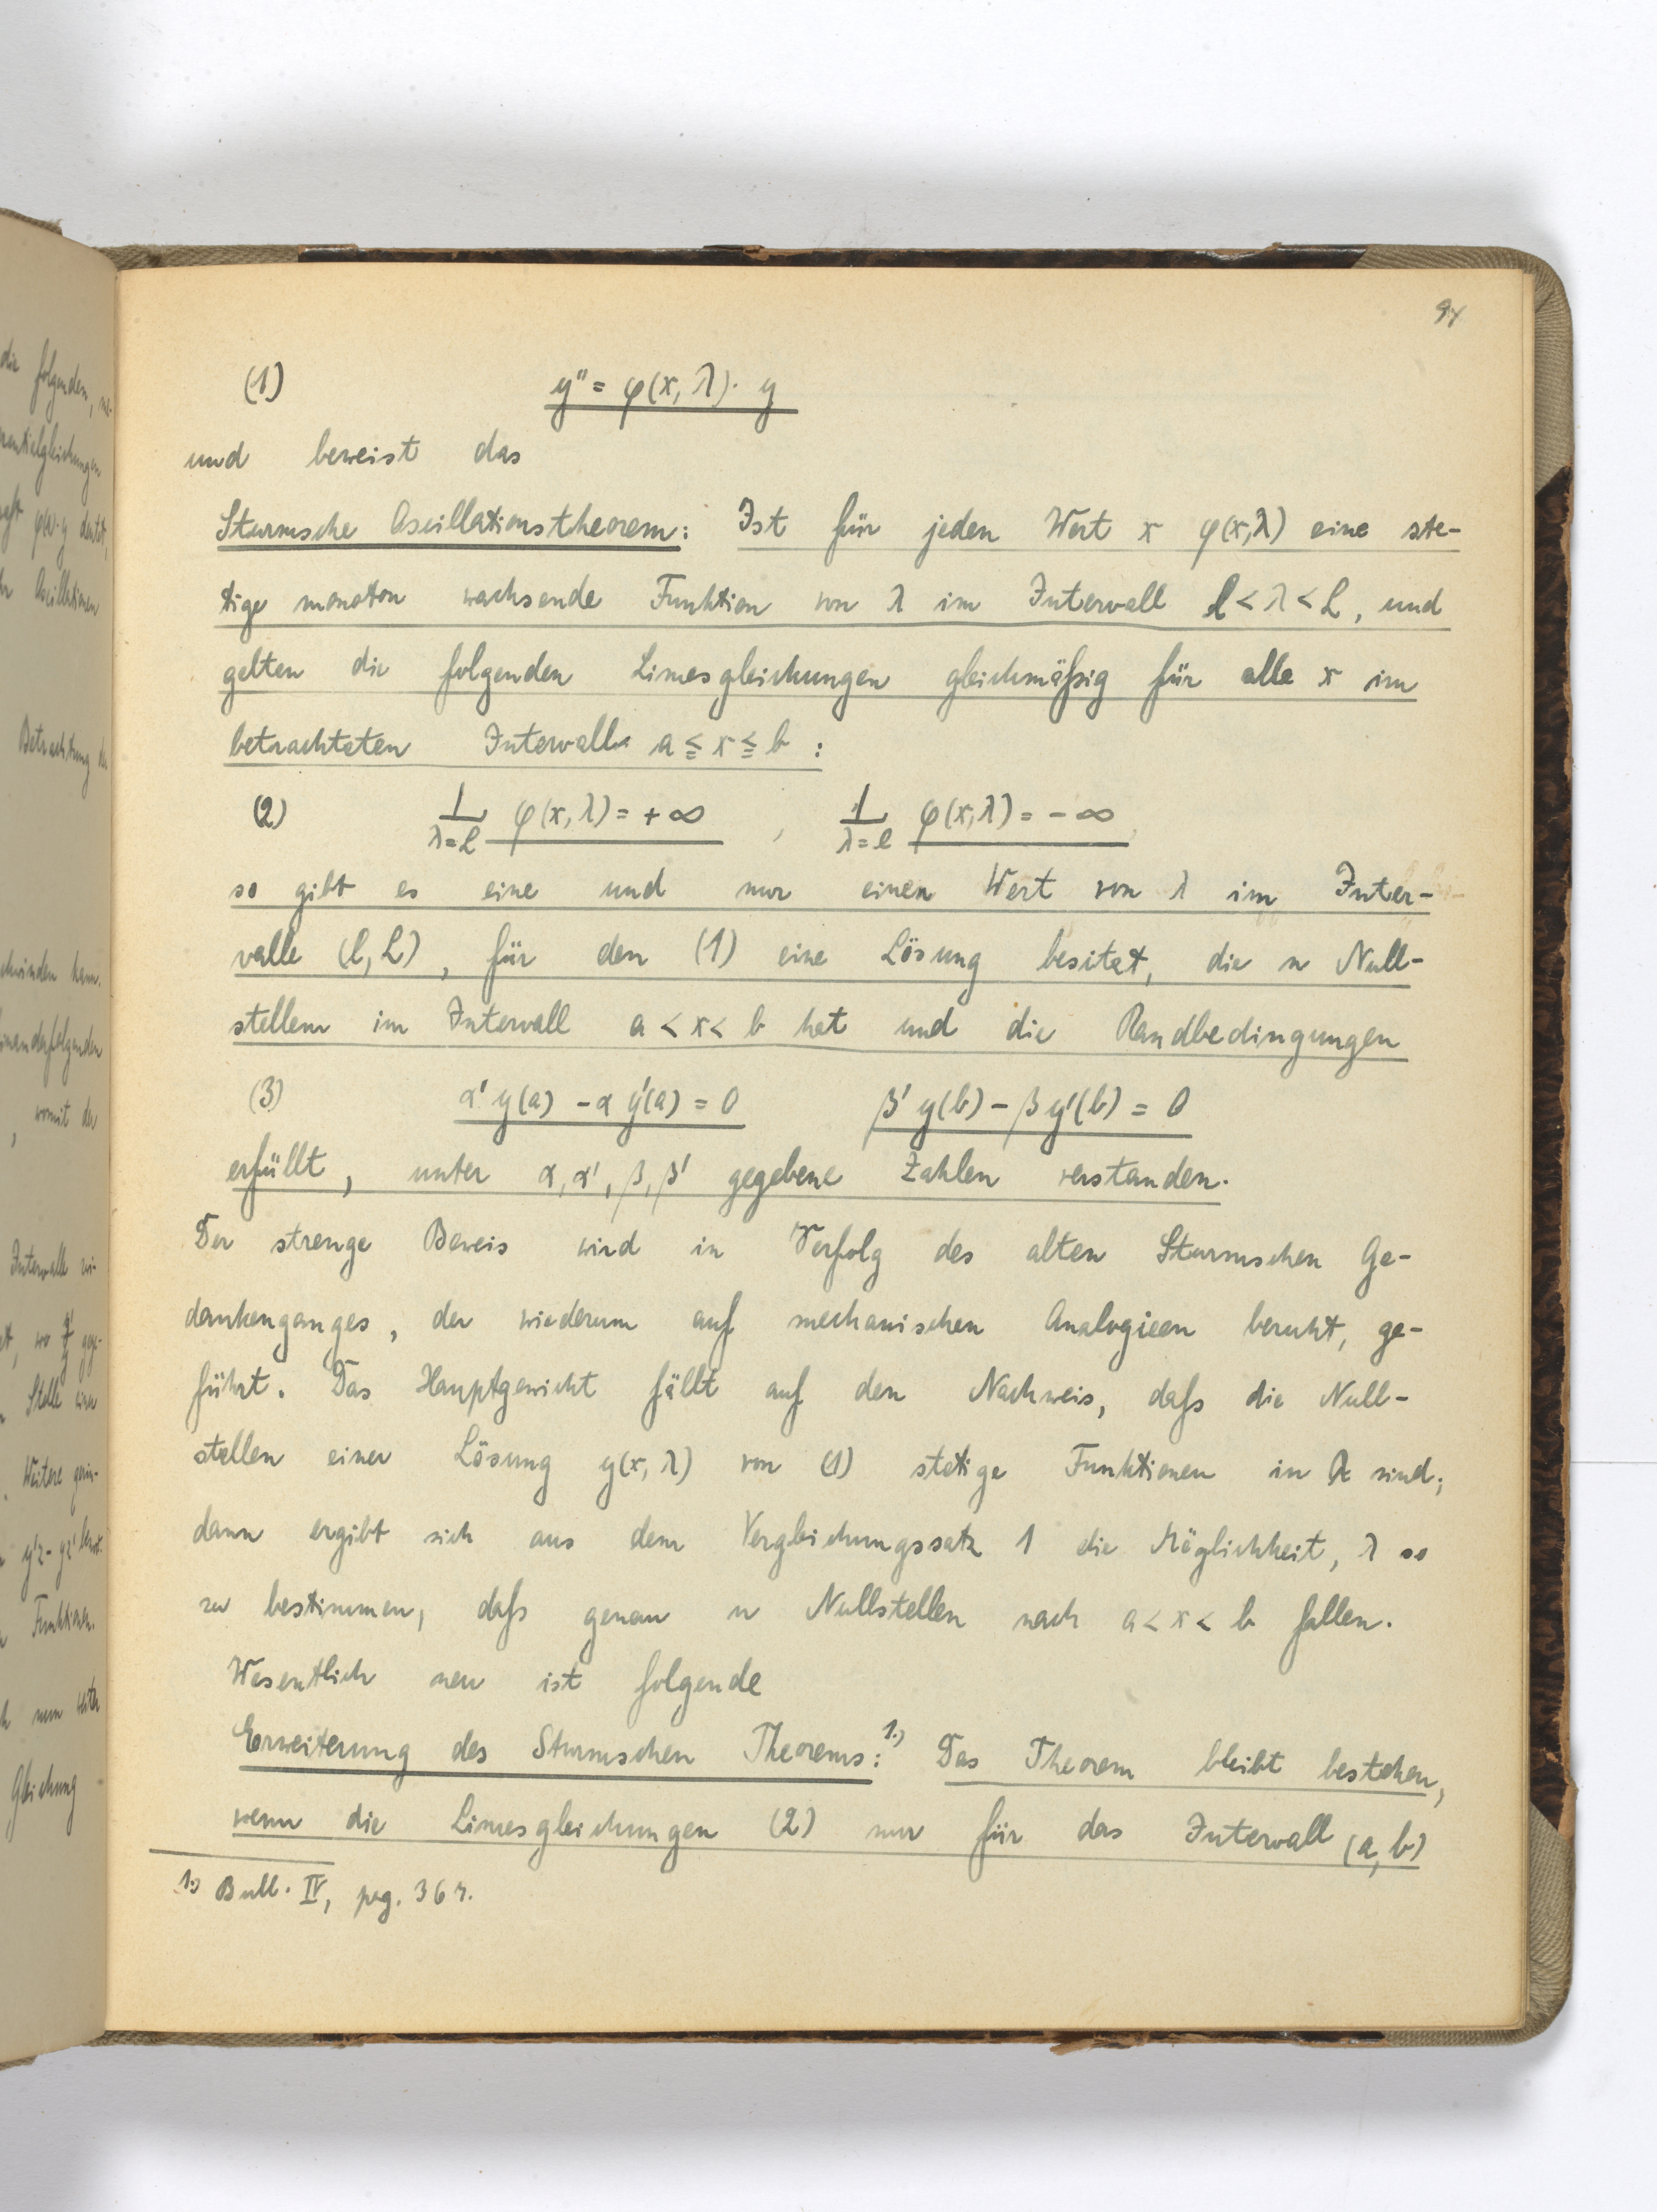 94
(1) y'' = φ(x, λ)· y
und beweist das
Sturmsche Oscillationstheorem: Ist für jeden Wert x φ(x,λ) eine ste-
tige monoton wachsende Funktion von λ im Intervall l < λ < L, und
gelten die folgenden Limesgleichungen gleichmäßig für alle x im
betrachteten Intervalle a ≦ x ≦ b :
(2) L φ(x, λ) = + ∞ , L φ(x, λ) = - ∞
λ=L λ=l
so gibt es eine und nur einen Wert von λ im Inter-
valle (l, L), für den (1) eine Lösung besitzt, die n Null-
stellen im Intervall a < x < b hat und die Randbedingungen
(3) α' y(a) - α y'(a) = 0 β' y(b) - β y'(b) = 0
erfüllt, unter α, α', β, β' gegebene Zahlen verstanden.
Der strenge Beweis wird in Verfolg des alten Sturmschen Ge-
dankenganges, der wiederum auf mechanischen Analogieen beruht, ge-
führt. Das Hauptgewicht fällt auf den Nachweis, daß die Null-
stellen einer Lösung y(x, λ) von (1) stetige Funktionen in λ sind;
dann ergibt sich aus dem Vergleichungssatz 1 die Möglichkeit, λ so
zu bestimmen, daß genau n Nullstellen nach a < x < b fallen.
Wesentlich neu ist folgende
Erweiterung des Sturmschen Theorems: 1.) Das Theorem bleibt bestehen,
wenn die Limesgleichungen (2) nur für das Intervall (a, b)
1.) Bull. IV, pag. 364.